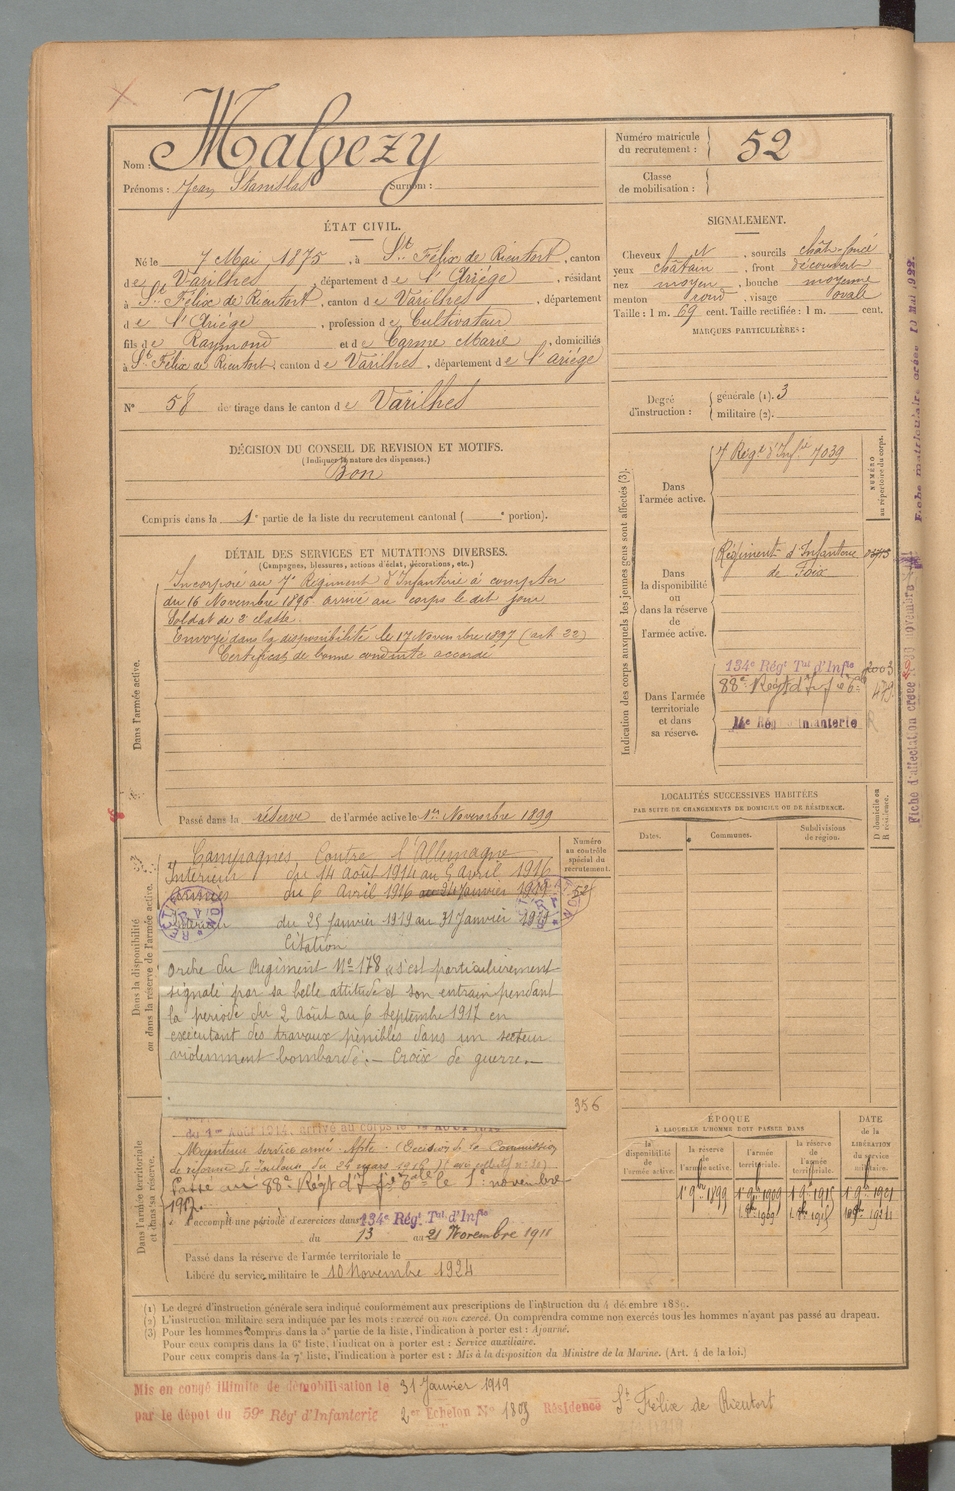 Nom : Malgezy
Prénoms : Jean Stanislas Surnom :
Numéro matricule
du recrutement : 52
Classe
de mobilisation :
ÉTAT CIVIL.
Né le 7 Mai 1875, à St Félix de Rieutort, canton
de Varilhes, département de l'Ariège, résidant
à St Félix de Rieutort, canton de Varilhes, département
de l'Ariège, profession de Cultivateur
fils de Raymond et de Carme Marie, domiciliés
à St Félix de Rieutort, canton de Varilhes, département de l'Ariège
N° 58 de tirage dans le canton de Varilhes
SIGNALEMENT.
Cheveux et, sourcils chât-foncé
yeux châtain, front découvert
nez moyen, bouche moyenne
menton rond, visage ovale
Taille : 1 m. 69 cent. Taille rectifiée : 1 m. cent.
MARQUES PARTICULIÈRES :
Degré
d'instruction :
générale (1). 3
militaire (2).
DÉCISION DU CONSEIL DE REVISION ET MOTIFS.
(Indiquer la nature des dispenses.)
Bon
Compris dans la 1e partie de la liste du recrutement cantonal ( e portion).
DÉTAIL DES SERVICES ET MUTATIONS DIVERSES.
(Campagnes, blessures, actions d'éclat, décorations, etc.)
Dans l'armée active.
Incorporé au 7e Régiment d'Infanterie à compter
du 16 Novembre 1896 arrivé au corps le dit jour
Soldat de 2e classe.
Envoyé dans la disponibilité le 17 Novembre 1897 (art 22)
Certificat de bonne conduite accordé
Passé dans la réserve de l'armée active le 1er Novembre 1899
Indication des corps auxquels les jeunes gens sont affectés (3).
NUMÉRO
au répertoire du corps.
Dans
l'armée active.
7 Régt d'Infie 7039
Dans
la disponibilité
ou
dans la réserve
de
l'armée active.
Régiment d'Infanterie
de Foix
Dans l'armée
territoriale
et dans
sa réserve.
134e Régt Tal d'Infie 2003
88e Régt d'Inf
14e Rég Infanterie
LOCALITÉS SUCCESSIVES HABITÉES
PAR SUITE DE CHANGEMENTS DE DOMICILE OU DE RÉSIDENCE.
D domicile ou
R résidence.
Dates.
Communes.
Subdivisions
de région.
Dans la disponibilité
ou dans la réserve de l'armée active.
Numéro
au contrôle
spécial du
recrutement.
Campagnes Contre l'Allemagne
Intérieur du 14 Août 1914 au 5 Avril 1916
Armées du 6 Avril 1916 au 24 Janvier 1919
du 25 Janvier 1919 au 31 Janvier 1919
Citation
Ordre du Régiment N° 178 « s'est particulièrement
signalé par sa belle attitude et son entrain pendant
la période du 2 Août au 6 Septembre 1917 en
exécutant des travaux pénibles dans un secteur
violemment bombardé. — Croix de guerre. —
356
Dans l'armée territoriale
et dans sa réserve.
Maintenu service armé. Apte. (Décision de la Commission
de réforme de Toulouse du 24 mars 1916
Passé au 88e Régt d'Inf le 1er novembre
1917.
A accompli une période d'exercices dans 134e Régt Tal d'Infie
du 13 au 21 Novembre 1911
Passé dans la réserve de l'armée territoriale le
Libéré du service militaire le 10 Novembre 1924
ÉPOQUE
À LAQUELLE L'HOMME DOIT PASSER DANS
DATE
de la
LIBÉRATION
du
service
militaire.
la
disponibilité
de
l'armée active.
la
réserve de
l'armée active.
l'armée
territoriale.
la
réserve de
l'armée
territoriale.
1 9bre 1899
1 9bre 1909
1 9bre 1915
1 9bre 1921
(1) Le degré d'instruction générale sera indiqué conformément aux prescriptions de l'instruction du 4 décembre 1889.
(2) L'instruction militaire sera indiquée par les mots : exercé ou non exercé. On comprendra comme non exercés tous les hommes n'ayant pas passé au drapeau.
(3) Pour les hommes compris dans la 5e partie de la liste, l'indication à porter est : Ajourné.
Pour ceux compris dans la 6e liste, l'indication à porter est : Service auxiliaire.
Pour ceux compris dans la 7e liste, l'indication à porter est : Mis à la disposition du Ministre de la Marine. (Art. 4 de la loi.)
Mis en congé illimité de démobilisation le 31 Janvier 1919
par le dépôt du 59e Régt d'Infanterie 2me Echelon N° 1805 Résidence St Félix de Rieutort
Fiche matriculaire créée 13 Mai 1922.
Fiche d'affectation créée 30 novembre